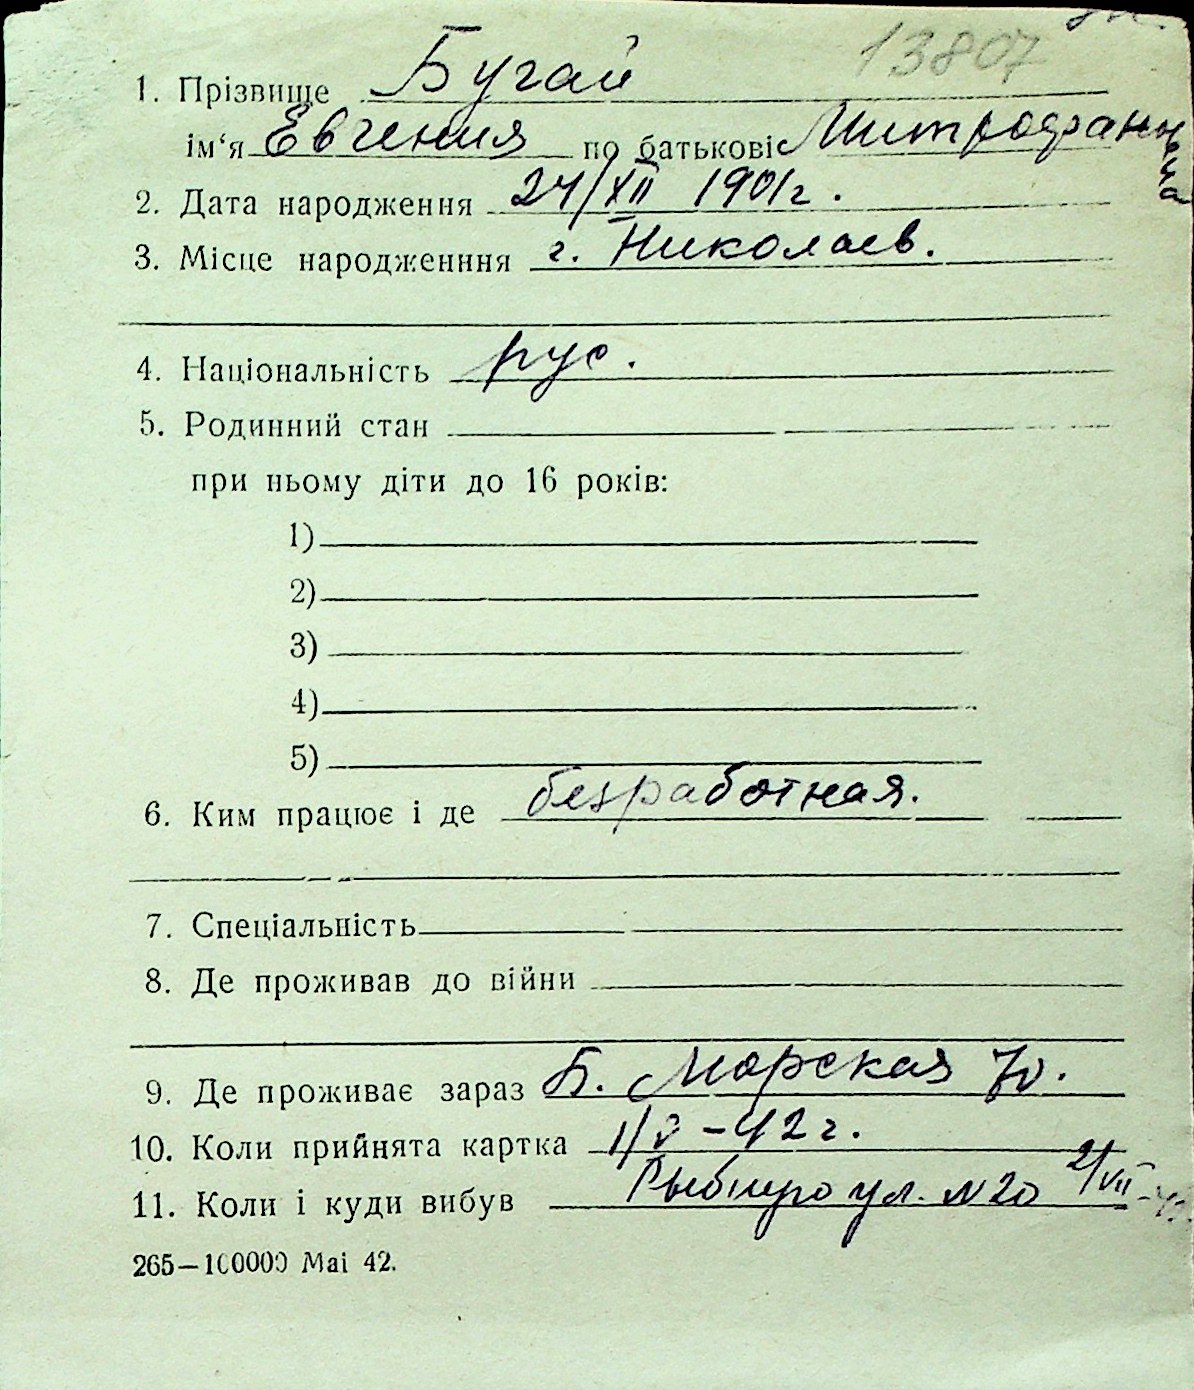 13807
1. Прізвище Бугай
ім‘я Евгения по батькові Митрофановна
2. Дата народження 24/XII 1901г.
3. Місце народженння г. Николаев.
4. Національність рус.
5. Родинний стан
при ньому діти до 16 років:
1)
2)
3)
4)
5)
6. Ким працює і де безработная.
7. Спеціальність
8. Де проживав до війни
9. Де проживає зараз Б. Морская 70.
10. Коли прийнята картка 1/V-42г.
11. Коли і куди вибув Рыбную ул. N 20 2/VII
265—100000 Mai 42.